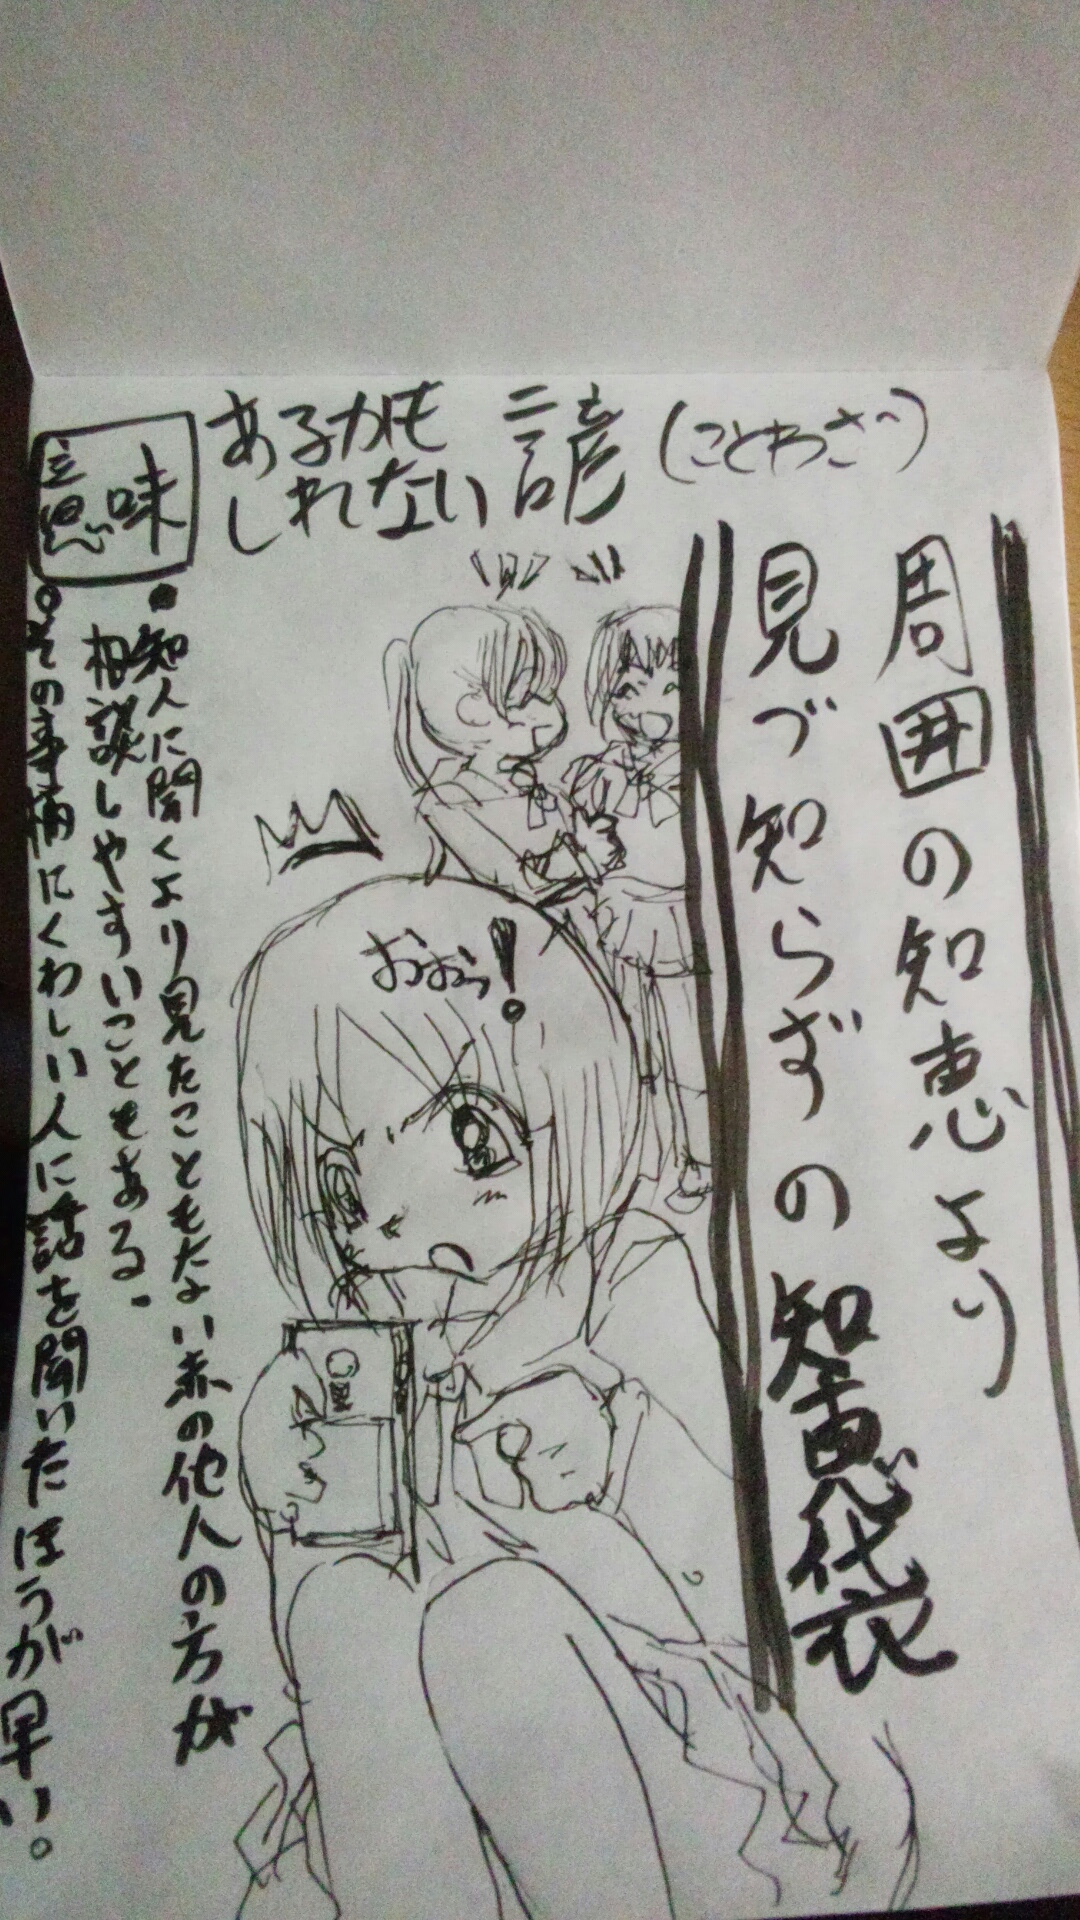 あるかも
しれない諺(ことわざ)
周囲の知恵より
見づ知らずの知恵袋
おおっ!
意味
•知人に聞くより見たこともない赤の他人の方が
相談しやすいこともある.
•その事柄にくわしい人に話を聞いたほうが早い。